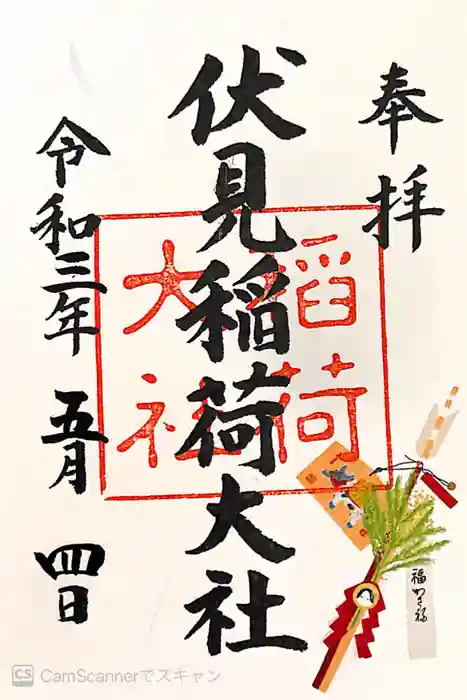 奉拝
伏見稲荷大社
令和三年 五月 四日
稲荷
大社
CS CamScannerでスキャン